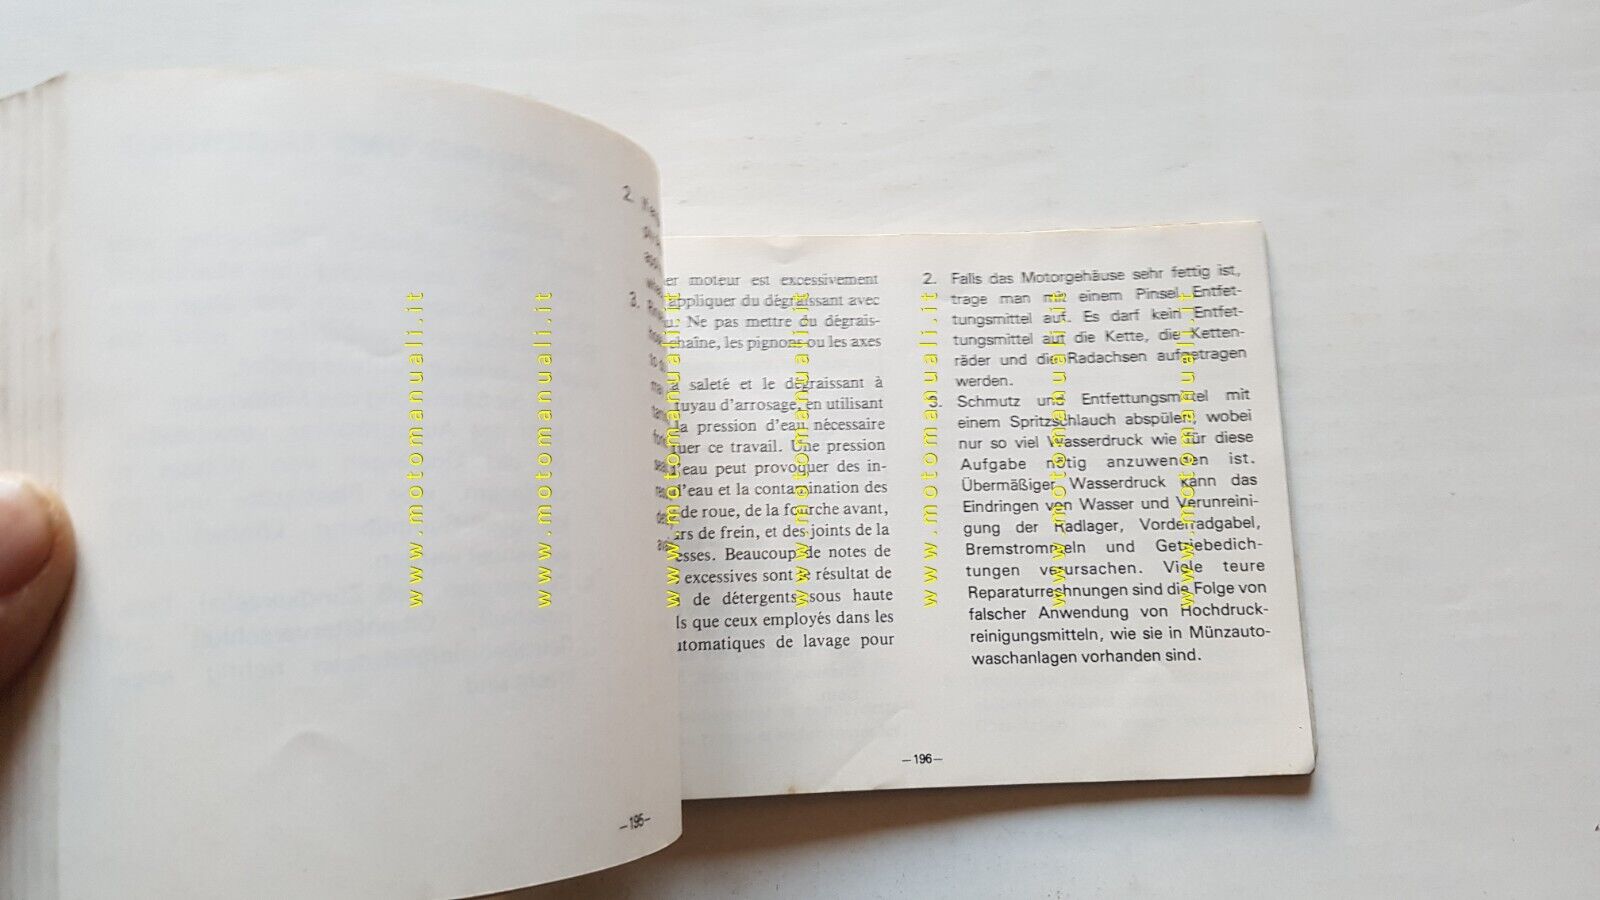 2.
3.
—195—
er moteur est excessivement
appliquer du dégraissant avec
u. Ne pas mettre du dégrais-
chaîne, les pignons ou les axes
a saleté et le dégraissant à
tuyau d'arrosage, en utilisant
la pression d'eau nécessaire
uer ce travail. Une pression
d'eau peut provoquer des in-
d'eau et la contamination des
de roue, de la fourche avant,
rs de frein, et des joints de la
esses. Beaucoup de notes de
excessives sont le résultat de
de détergents sous haute
ls que ceux employés dans les
utomatiques de lavage pour
2. Falls das Motorgehäuse sehr fettig ist,
trage man mit einem Pinsel Entfet-
tungsmittel auf. Es darf kein Entfet-
tungsmittel auf die Kette, die Ketten-
räder und die Radachsen aufgetragen
werden.
3. Schmutz und Entfettungsmittel mit
einem Spritzschlauch abspülen, wobei
nur so viel Wasserdruck wie für diese
Aufgabe nötig anzuwenden ist.
Übermäßiger Wasserdruck kann das
Eindringen von Wasser und Verunreini-
gung der Radlager, Vorderradgabel,
Bremstrommeln und Getriebedich-
tungen verursachen. Viele teure
Reparaturrechnungen sind die Folge von
falscher Anwendung von Hochdruck-
reinigungsmitteln, wie sie in Münzauto-
waschanlagen vorhanden sind.
—196—
www.motomanuali.it
www.motomanuali.it
www.motomanuali.it
www.motomanuali.it
www.motomanuali.it
www.motomanuali.it
www.motomanuali.it